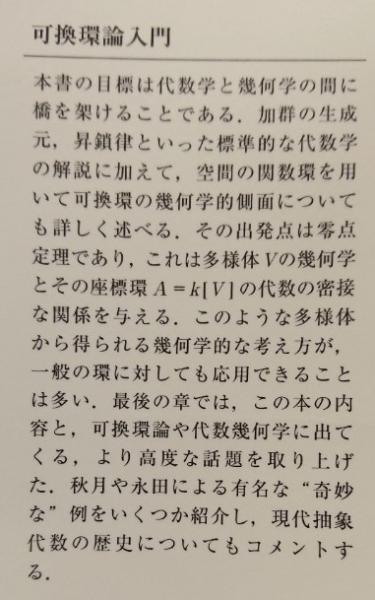 可換環論入門
本書の目標は代数学と幾何学の間に
橋を架けることである．加群の生成
元，昇鎖律といった標準的な代数学
の解説に加えて，空間の関数環を用
いて可換環の幾何学的側面について
も詳しく述べる．その出発点は零点
定理であり，これは多様体Vの幾何学
とその座標環 A = k[V] の代数の密接
な関係を与える．このような多様体
から得られる幾何学的な考え方が，
一般の環に対しても応用できること
は多い．最後の章では，この本の内
容と，可換環論や代数幾何学に出て
くる，より高度な話題を取り上げ
た．秋月や永田による有名な“奇妙
な”例をいくつか紹介し，現代抽象
代数の歴史についてもコメントす
る．